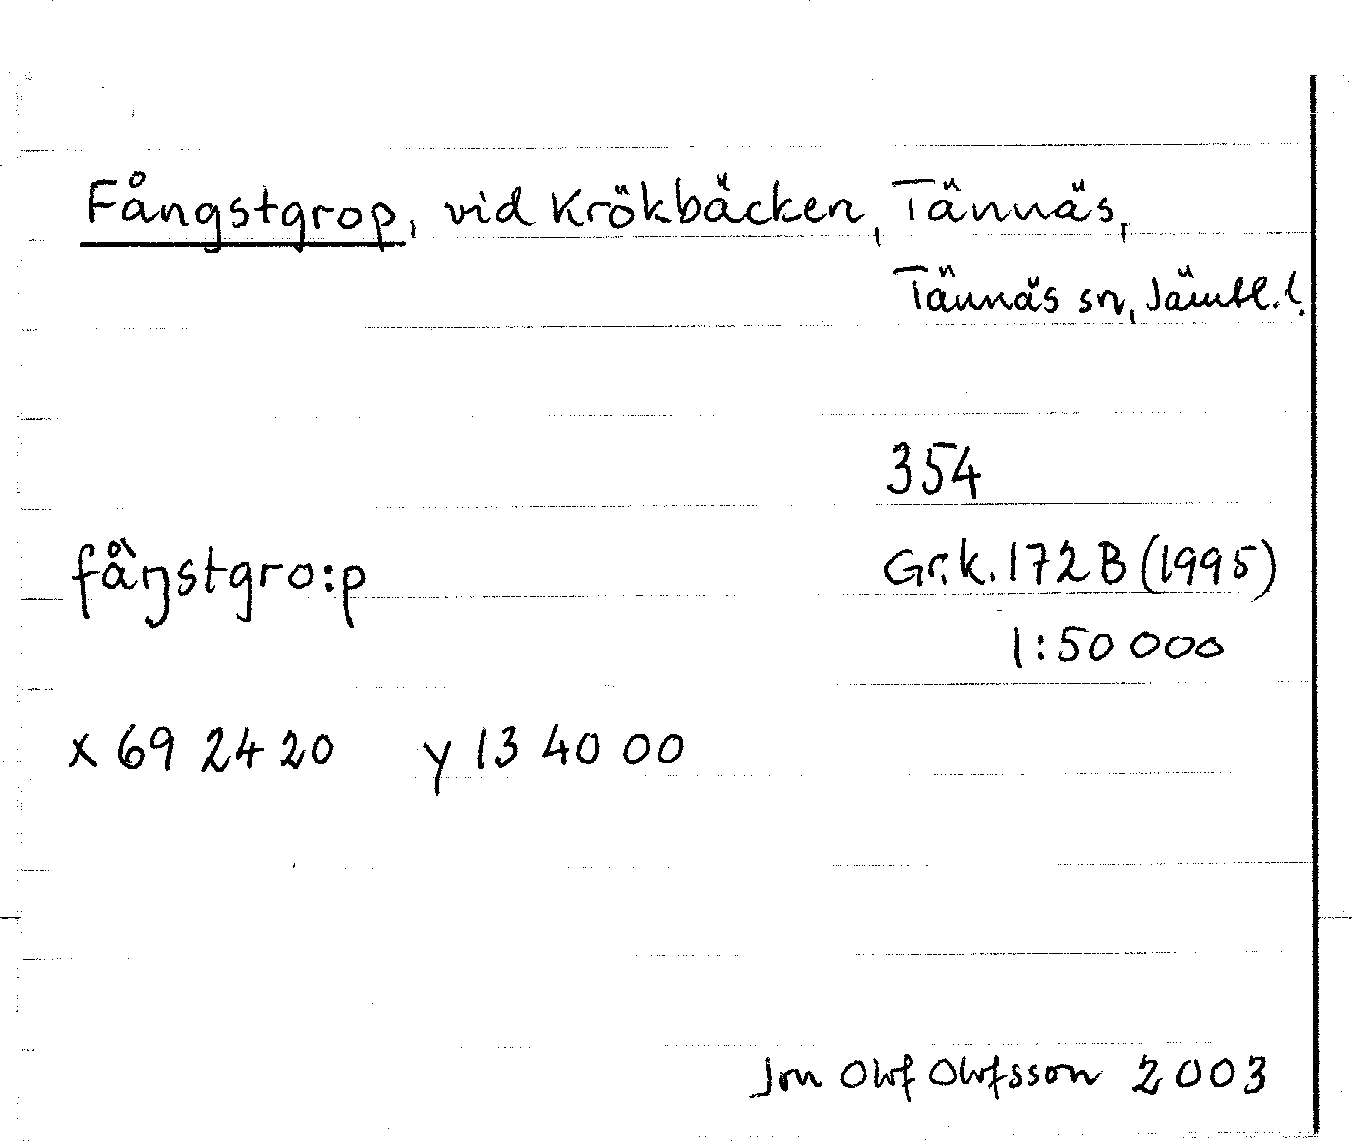 Fångstgrop, vid Krökbäcken, Tännäs,
Tännäs sn, Jämtl. l.
354
fåŋ̀stgro:p
Gr.k. 172 B (1995)
1:50 000
x 69 24 20 y 13 40 00
Jon Olof Olofsson 2003